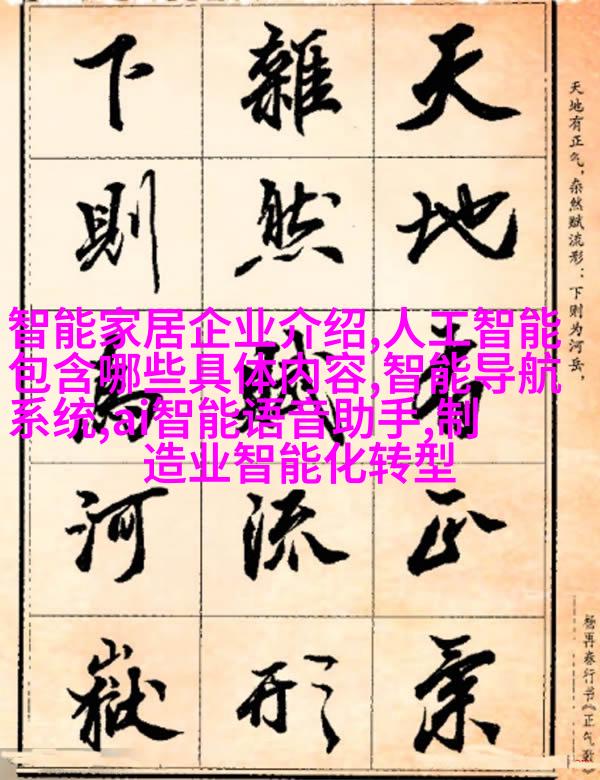 天地有正氣
雜然賦流形
下則為河嶽
天地有正气，杂然赋流形：下则为河岳，
杨再春行书《正气歌》
智能家居企业介绍,人工智能
包含哪些具体内容,智能导航
系统,ai智能语音助手,制
造业智能化转型